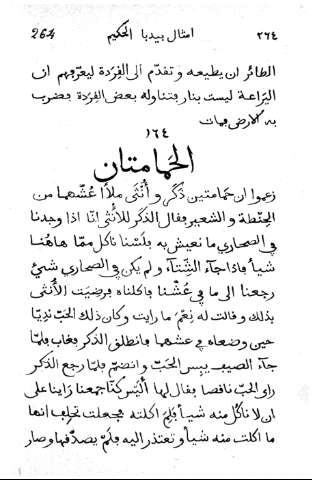 264 امثال بيدبا الحكيم ٢٦٤
الطائر ان يطيعه وتقدّم الى القِرَدة ليعرّفهم ان
اليَراعة ليست بنار فتناوله بعض القِرَدة فضرب
به الارض فمات
١٦٤
الحمامتان
زعموا ان حمامتين ذَكَر وأُنْثَى ملأا عُشّهما من
الحِنْطة والشعير فقال الذكَر للأنثى انّا اذا وجدنا
في الصحاري ما نعيش به فلَسْنا نأكل ممّا هاهُنا
شيأ فاذا جآء الشِتآء ولم يكن في الصحاري شيئ
رجعنا الى ما في عُشّنا فاكلناه فرضيَت الأُنثى
بذلك وقالت له نِعْمَ ما رايت وكان ذلك الحَبّ نديّا
حين وضعاه في عشهما فانطلق الذكر فغاب فلمّا
جآء الصيف يبس الحَبّ وانضمر فلمّا رجع الذكر
راى الحَبّ ناقصا فقال لها أَلَيْس كنّا جمعنا رَايَنا على
ان لا نأكل منه شيأ فلِمَ اكلتهِ فجعلت تحلف انها
ما اكلت منه شيأ وتعتذر اليه فلم يصدّقها وصار